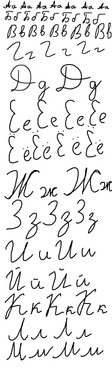 Аа Аа Аа Аа Аа Аа
Бб Бб Бб Бб
Вв Вв Вв Вв
Гг Гг Гг
Дд Дд
Ее Ее Ее
Ёё Ёё Ёё
Жж Жж
Зз Зз Зз
Ии Ии
Йй Йй
Кк Кк Кк
Лл Лл
Мм Мм